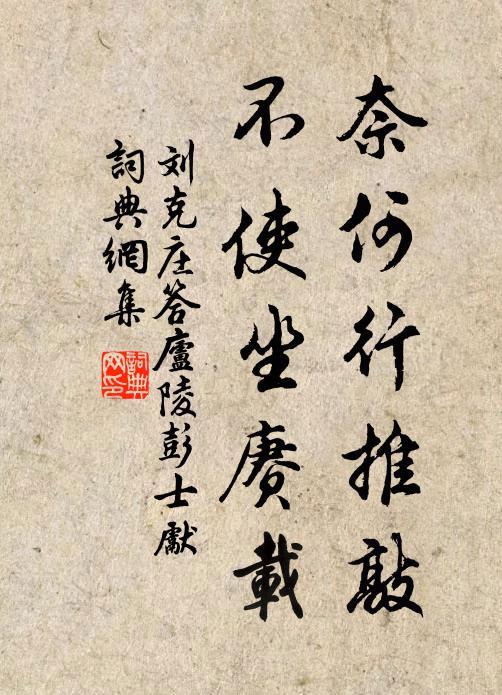 奈何行推敲
不使坐赓載
刘克庄答廬陵彭士獻
詞典網集
詞典网印